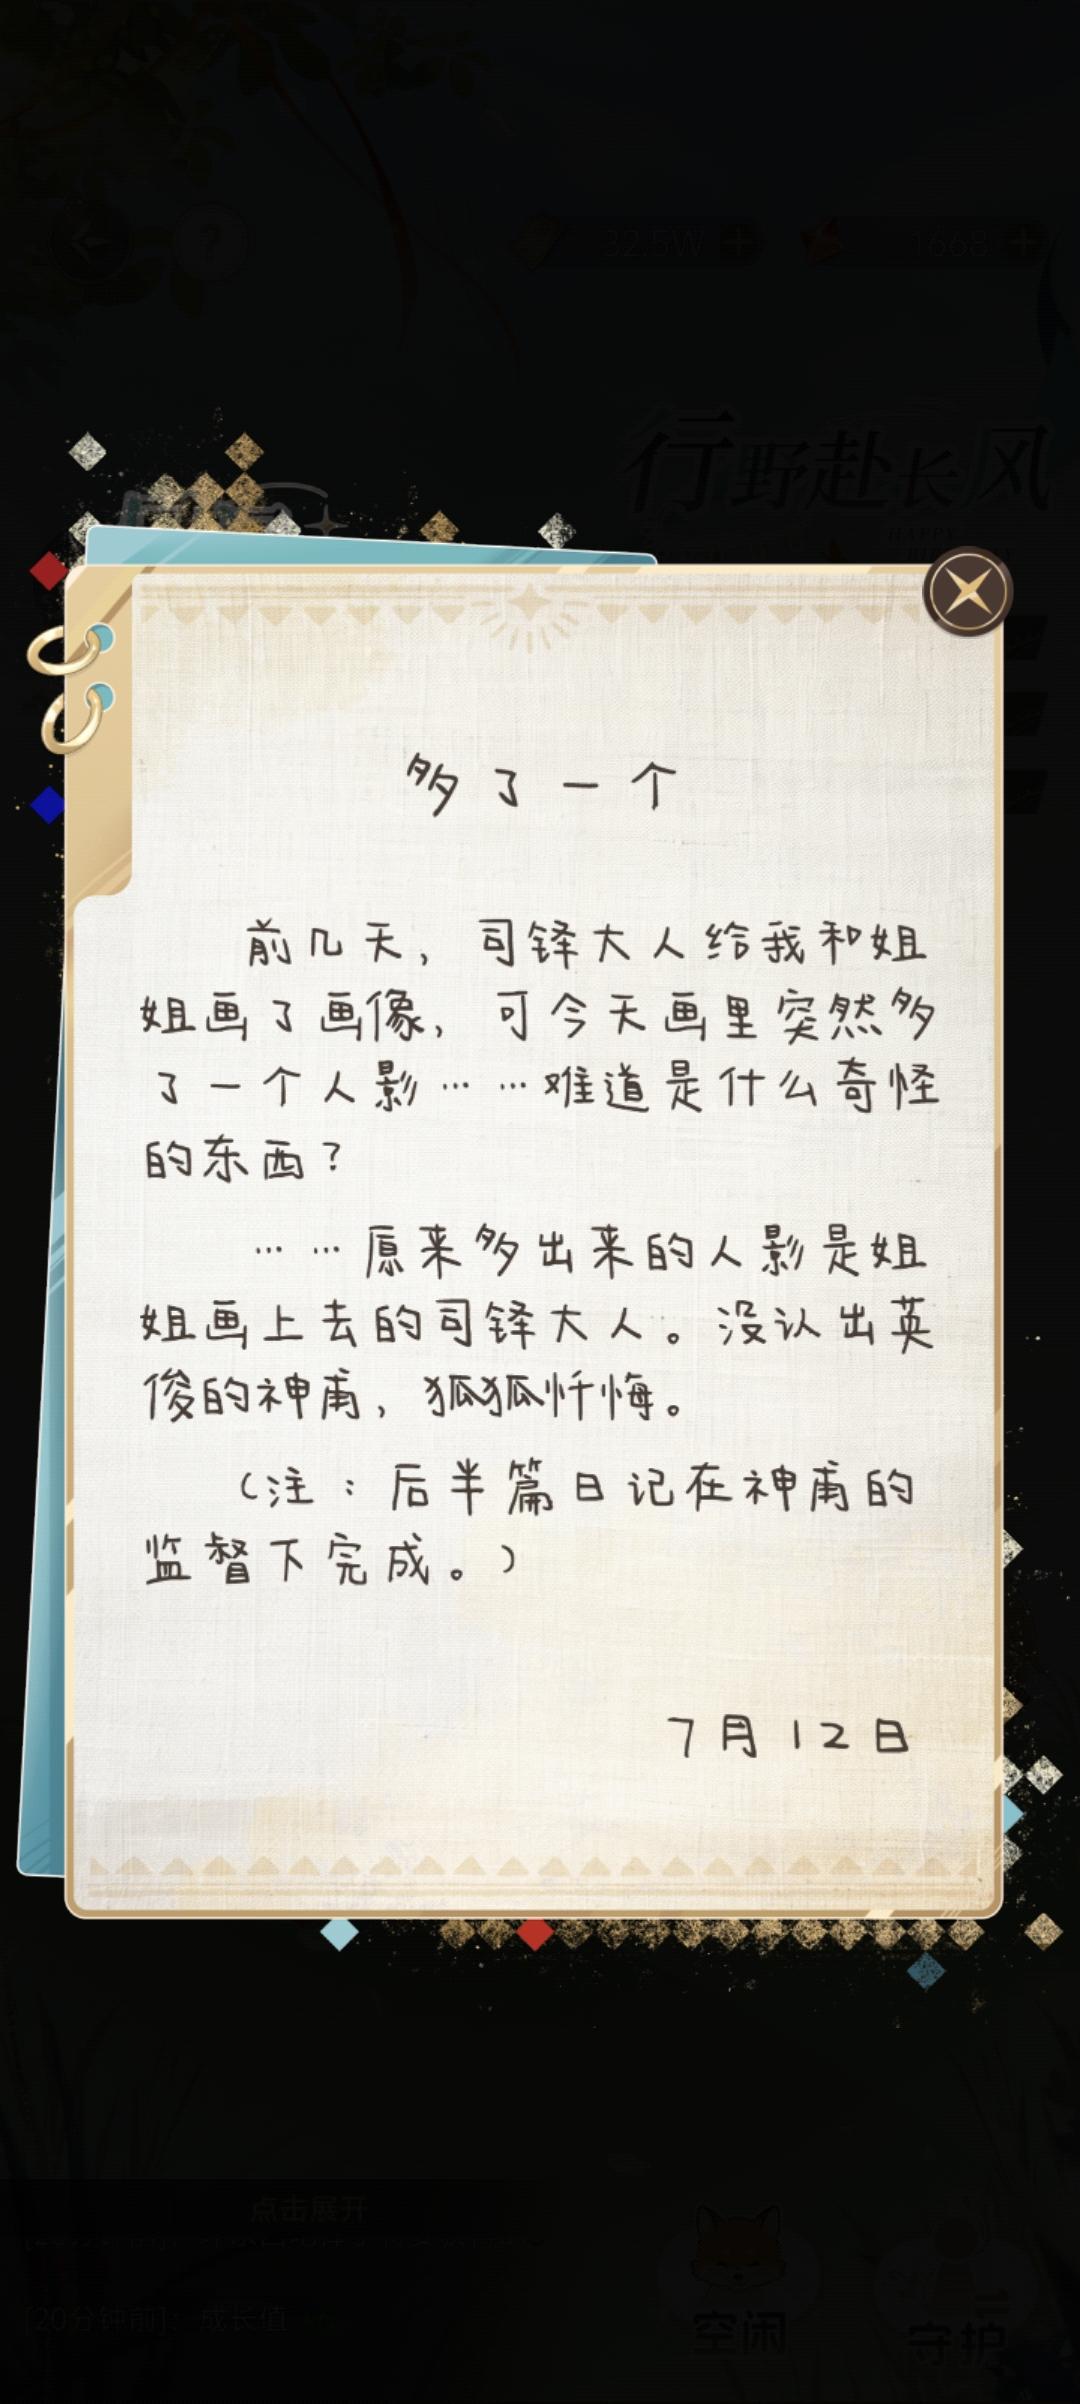 32.5W
1668
行野赴长风
HAPPY
多了一个
前几天，司铎大人给我和姐
姐画了画像，可今天画里突然多
了一个人影……难道是什么奇怪
的东西？
……原来多出来的人影是姐
姐画上去的司铎大人。没认出英
俊的神甫，狐狐忏悔。
（注：后半篇日记在神甫的
监督下完成。）
7月12日
点击展开
[20分钟前]：成长值
空闲
守护